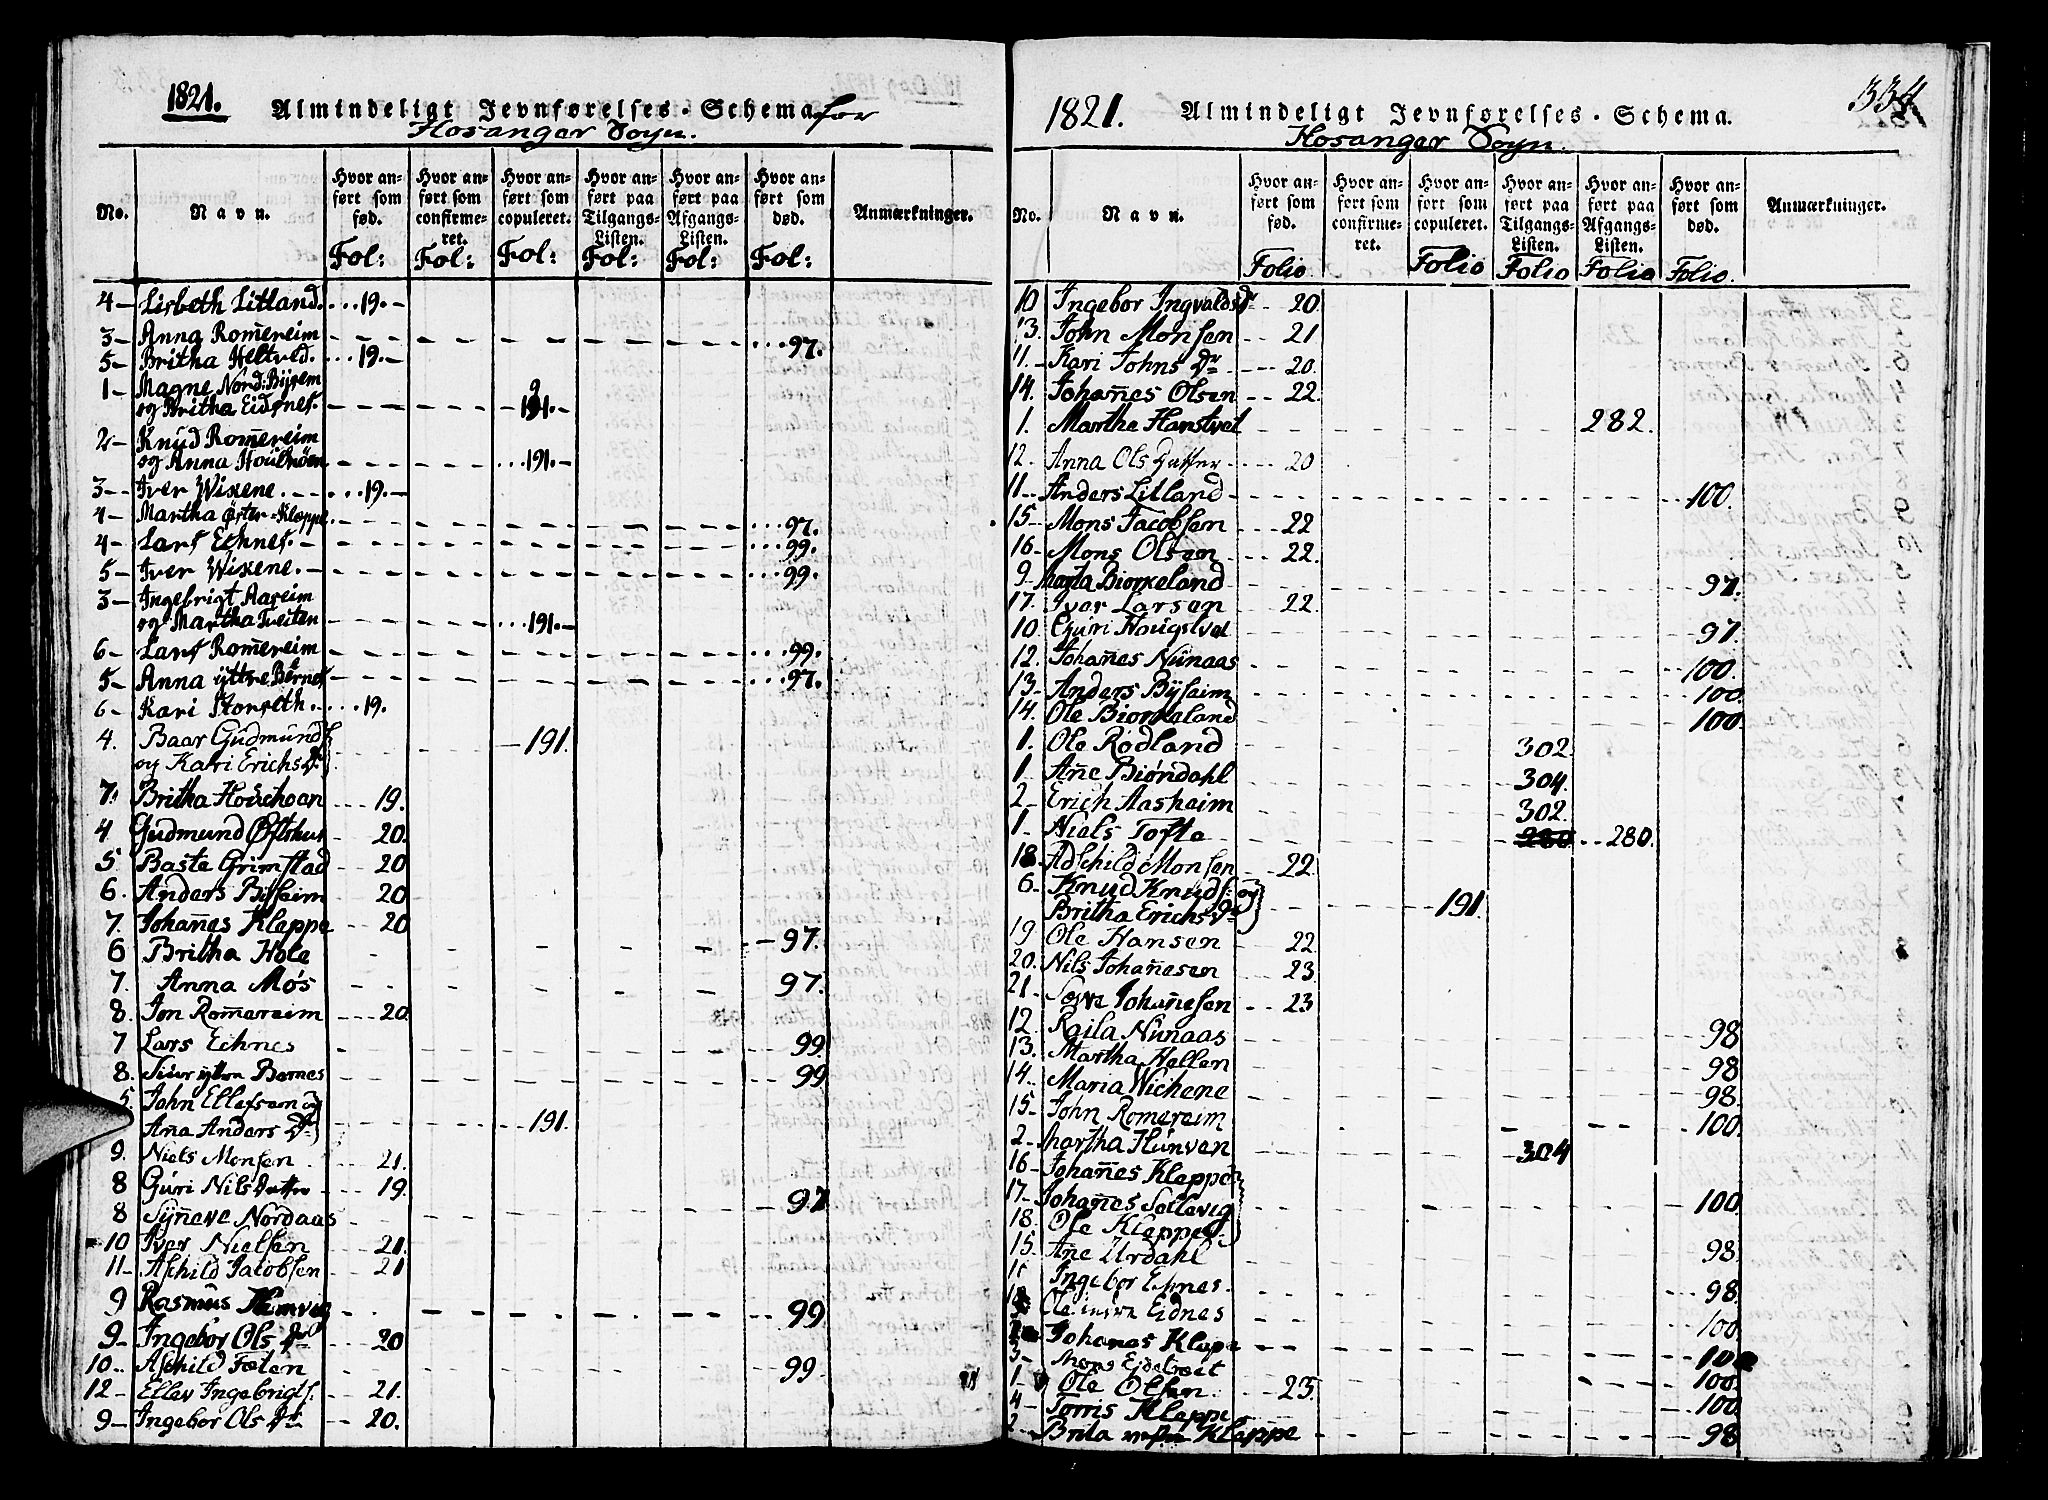 1821. Almindeligt Jevnførelses-Schema for
Hosanger Sogn.
No. Navn. Hvor anført som fød. Fol: Hvor anført som confirmeret. Fol: Hvor anført som copuleret. Fol: Hvor anført paa Tilgangs-Listen. Fol: Hvor anført paa Afgangs-Listen. Fol: Hvor anført som død. Fol: Anmærkninger.
4- Lisbeth Litland. 19.
3- Anna Rom̄ereim 97.
5- Britha Heltved. 19.
1- Magne Nord:Bÿrem
og Britha Eidsnes. 191.
2- Knud Rom̄ereim
og Anna 191.
3- Iver Wixene. 19.
4- Martha øster-Kleppe. 97.
4- Lars Echnes. 99.
5- Iver Wixene. 99.
3- Ingebrigt Aareim
og Martha Tveiten 191.
6- Lars Rom̄ereim 99.
5- Anna ÿttre Bernes 97.
6- Kari Storseth. 19.
4. Baar Gudmunds
og Kari Erichs Dr 191.
7. Britha 19.
4 Gudmund Øftshus 20.
5 Baste Grimstad 20
6. Anders Bÿseim 20
7. Johan̄es Kleppe 20
6 Britha Hole 97.
7. Anna Møs 97.
8. Jon Rom̄ereim 20
7 Lars Echnes 99
8. Siur ytre Bernes 99
5. John Ellefsen og
An̄a Anders Dr 191.
9. Niels Monsen 21.
8 Guri Nils Datter 19.
8 Sÿn̄eve Nordaas 97
10 Iver Nielsen 21.
11- Aschild Jacobsen 21
9 Rasmus 99
9- Ingebor Ols Dr 20
10.. Aschild Foten 99.
12- Ellev Ingebrigts. 21.
9- Ingebor Ols Dr 20.
334
1821. Almindeligt Jevnførelses-Schema.
Hosanger Sogn.
No. Navn. Hvor anført som fød. Folio. Hvor anført som confirmeret. Hvor anført som copuleret. Folio Hvor anført paa Tilgangs-Listen. Folio Hvor anført paa Afgangs-Listen. Folio Hvor anført som død. Folio. Anmærkninger.
10 Ingebor Ingvalds Dr 20.
13. John Monsen 21
11.- Kari Johns Dr 20.
14. Johan̄es Olsen 22.
1. Martha Hanstvet 282.
12. Anna Ols Datter 20
11.. Anders Litland 100.
15- Mons Jacobsen 22
16- Mons Olsen 22.
9- Marta Biorkeland 97.
17. Iver Larsen 22.
10. Guri 97.
12. Johan̄es Nunaas 100.
13- Anders Bÿseim 100.
14. Ole Biorkeland 100.
1. Ole Rødland 302.
1 An̄e Biørndahl 304.
2- Erich Aasheim 302.
1- Niels Tofte 280 280.
18 Adschild Monsen 22.
6- Knud Knuds: og
Britha Erichs Dr 191.
19 Ole Hansen 22.
20. Nils Johan̄esen 23
21- Johan̄esen 23
12. Raila Nunaas 98
13. Martha Hellen 98
14.. Maria Wichene 98.
15- John Romereim 100.
2- Martha Hunven 304
16- Johan̄es Kleppe
17- Johan̄es Sollevig 100.
18. Ole Kleppe
15. An̄e Urdahl 98.
Ingebor Echnes. 98.
Ole indre Eidnes 100.
Johanes Kleppe 100
3- Mons 100.
1- Ole Olsen. 23.
4- Torris Kleppe 100
2 Brita Kleppe 98